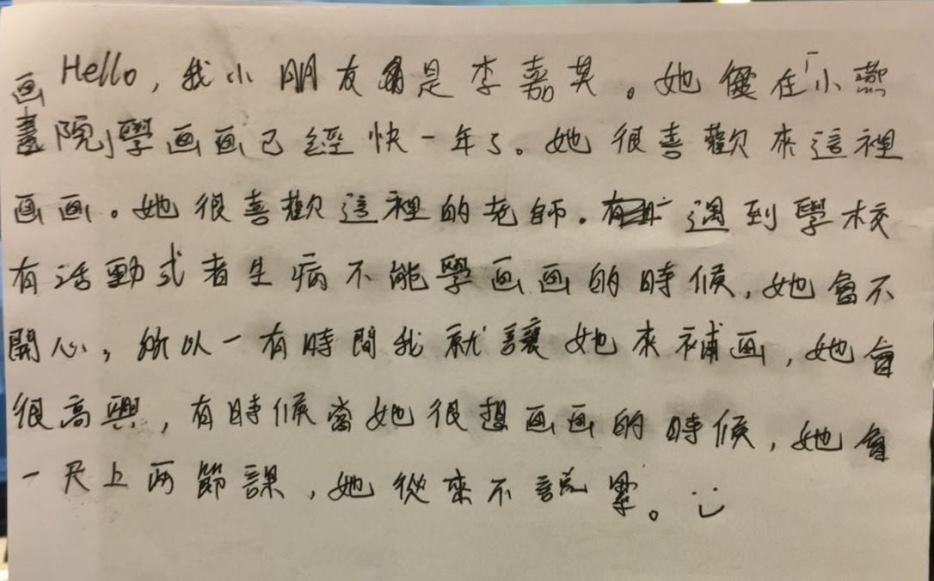 Hello, 我小朋友是李嘉英。她僅在「小燕
画畫院」學画画已經快一年了。她很喜歡來這裡
画画。她很喜歡這裡的老師。遇到學校
有活動或者生病不能學画画的時候,她會不
開心,所以一有時間我就讓她來補画,她會
很高興,有時候當她很想画画的時候,她會
一天上两節課,她從來不說累。